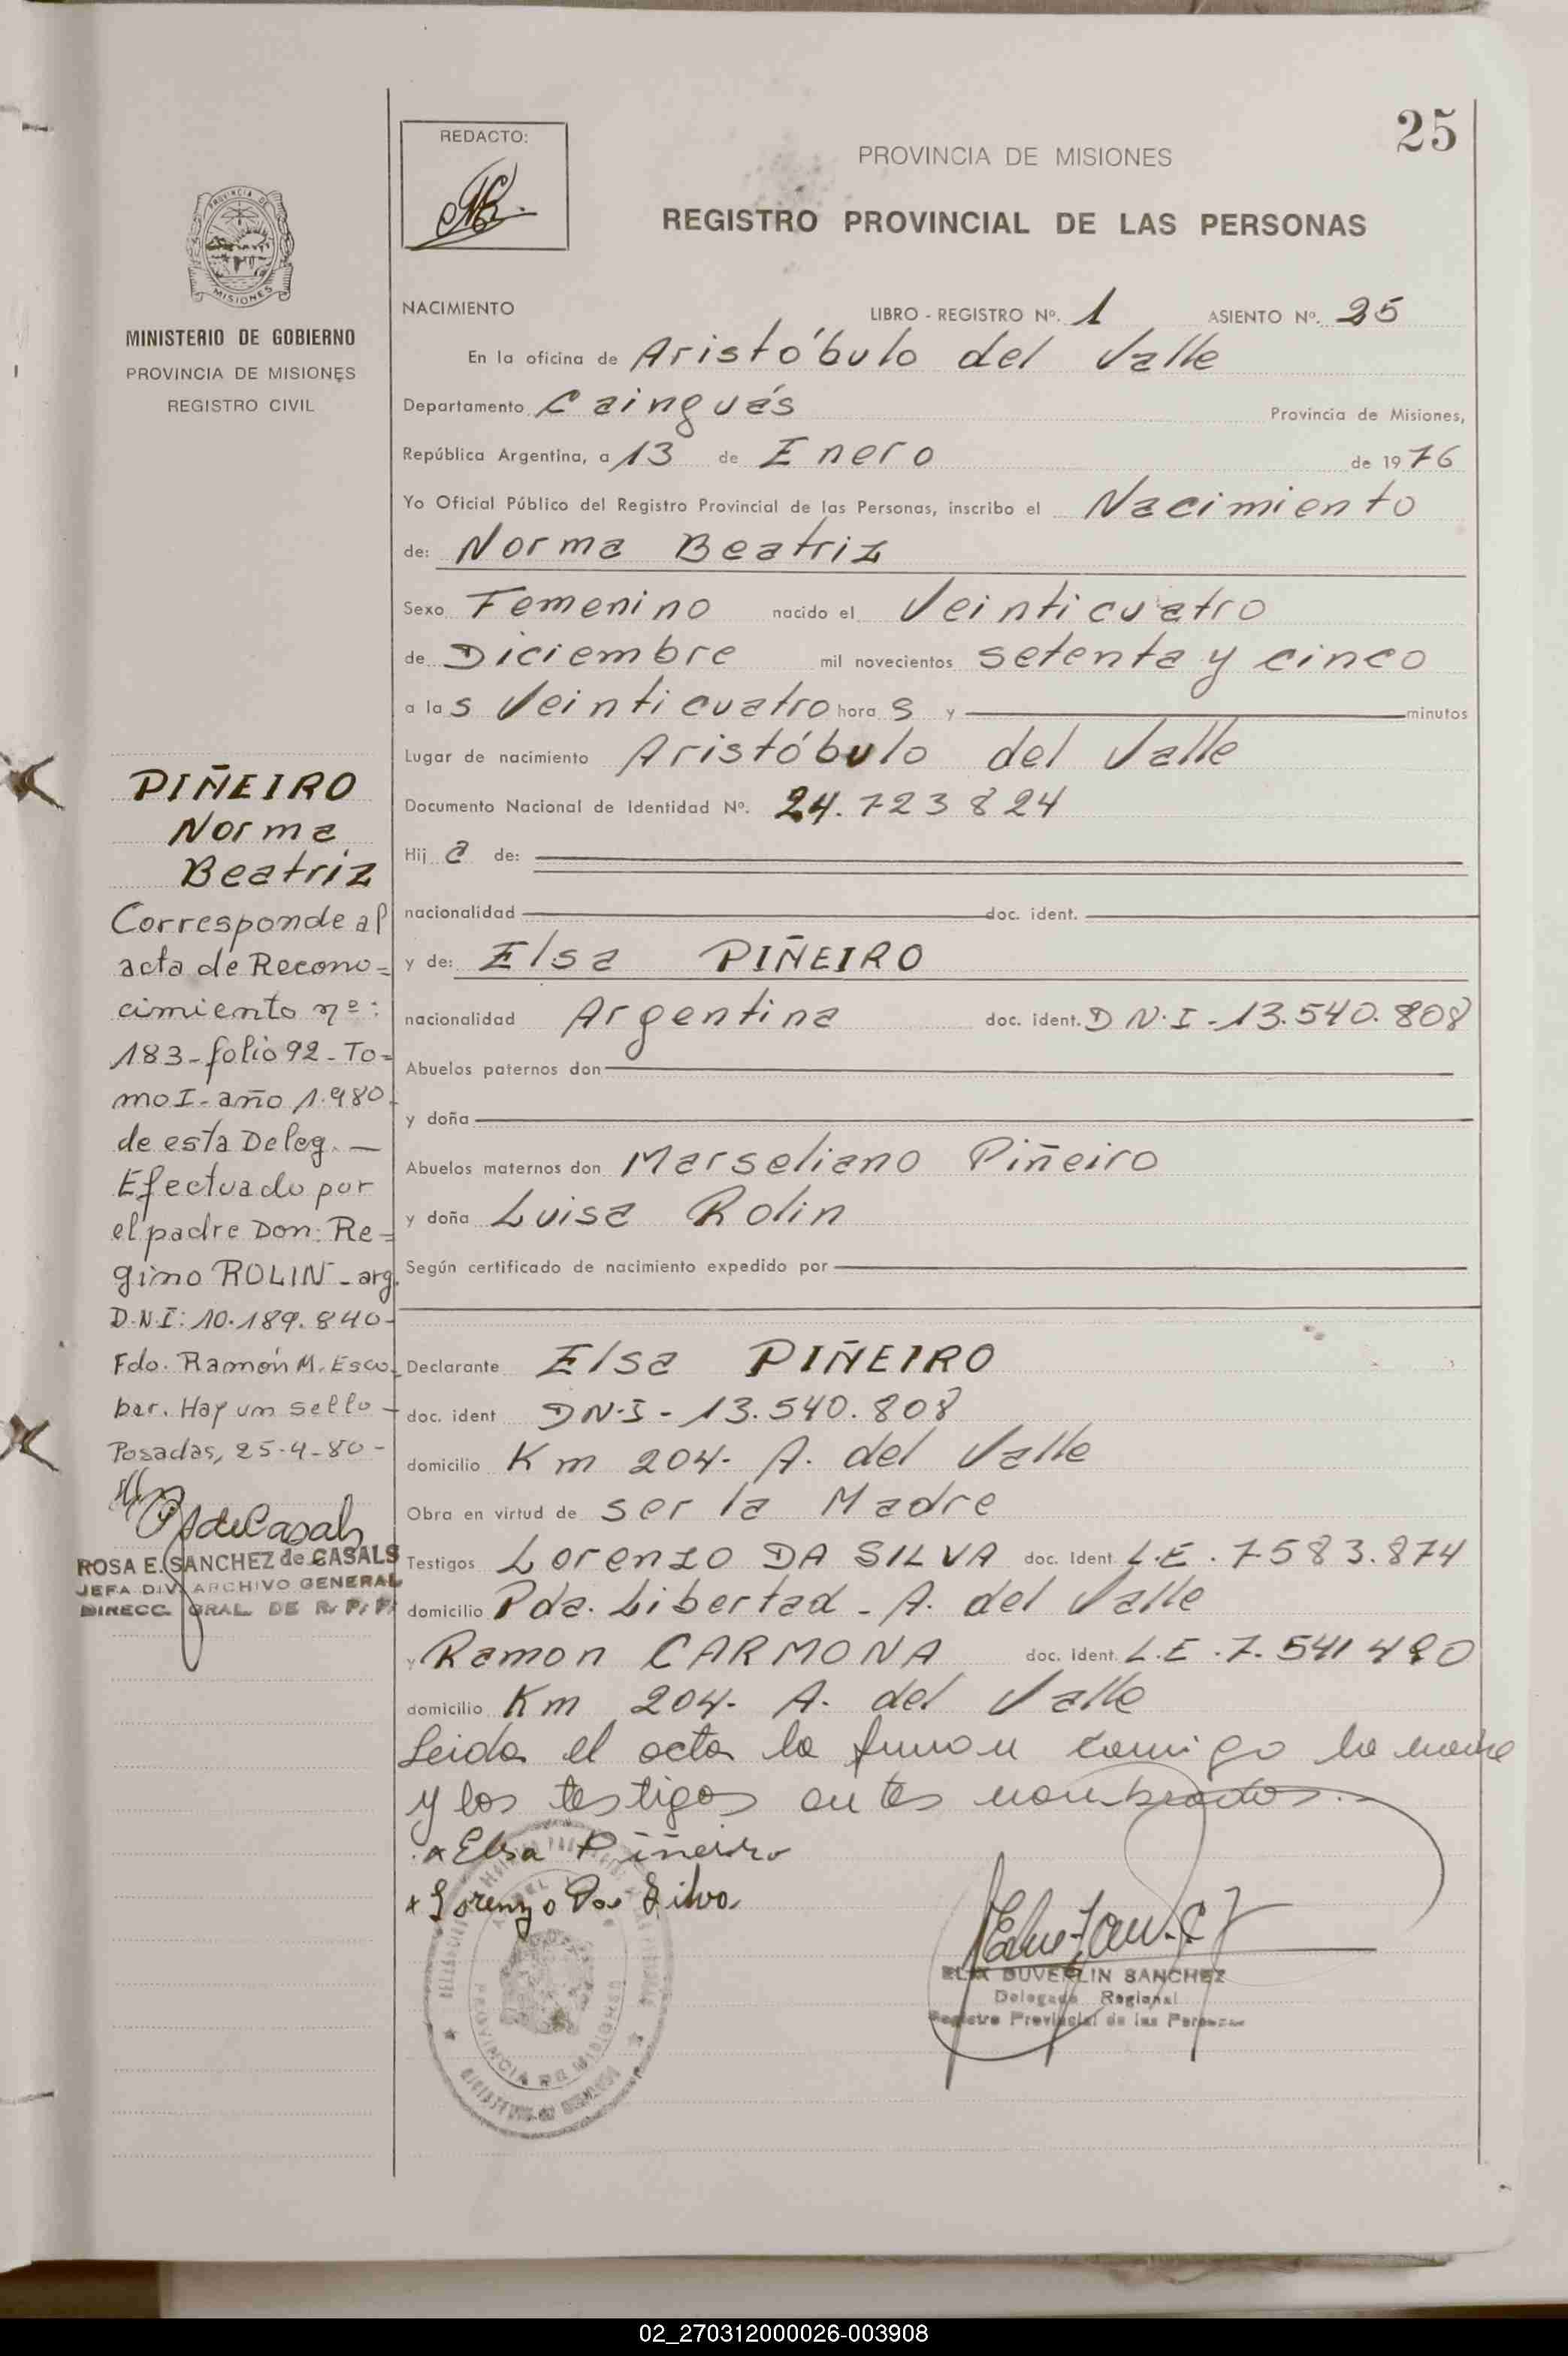 25
REDACTO:
PROVINCIA DE MISIONES
REGISTRO PROVINCIAL DE LAS PERSONAS
PROVINCIA DE
MISIONES
MINISTERIO DE GOBIERNO
PROVINCIA DE MISIONES
REGISTRO CIVIL
NACIMIENTO LIBRO - REGISTRO Nº. 1 ASIENTO Nº. 25
En la oficina de Aristóbulo del Valle
Departamento Cainguás Provincia de Misiones,
República Argentina, a 13 de Enero de 1976
Yo Oficial Público del Registro Provincial de las Personas, inscribo el Nacimiento
de: Norma Beatriz
Sexo Femenino nacido el Veinticuatro
de Diciembre mil novecientos setenta y cinco
a las Veinticuatro horas y minutos
Lugar de nacimiento Aristóbulo del Valle
Documento Nacional de Identidad Nº. 24.723824
Hija de:
nacionalidad doc. ident.
y de: Elsa PIÑEIRO
nacionalidad Argentina doc. ident. D N.I-13.540.808
Abuelos paternos don
y doña
Abuelos maternos don Marseliano Piñeiro
y doña Luisa Rolin
Según certificado de nacimiento expedido por
Declarante Elsa PIÑEIRO
doc. ident DN.I-13.540.808
domicilio Km 204- A. del Valle
Obra en virtud de ser la Madre
Testigos Lorenzo DA SILVA doc. Ident. L.E. 7583.874
domicilio Pda. Libertad - A. del Valle
y Ramon CARMONA doc. Ident. L.E.7.541490
domicilio Km 204- A. del Valle
Leida el acta la firman conmigo la madre
y los testigos antes nombrados.-
x Elsa Piñeiro
x Lorenzo Da Silva
ELSA DUVERLIN SANCHEZ
Delegada Regional
Registro Provincial de las Personas
PROVINCIA DE MISIONES
PIÑEIRO
Norma
Beatriz
Corresponde al
acta de Recono=
cimiento nº:
183-folio 92-To=
mo I-año 1.980.
de esta Deleg. —
Efectuado por
el padre Don: Re=
gimo ROLIN-arg.
D.N.I: 10.189.840-
Fdo. Ramón M. Esco-
bar. Hay un sello-
Posadas, 25-4-80-
ROSA E. SANCHEZ de CASALS
JEFA DIV. ARCHIVO GENERAL
DIRECC. GRAL. DE R. P. P.
02_270312000026-003908